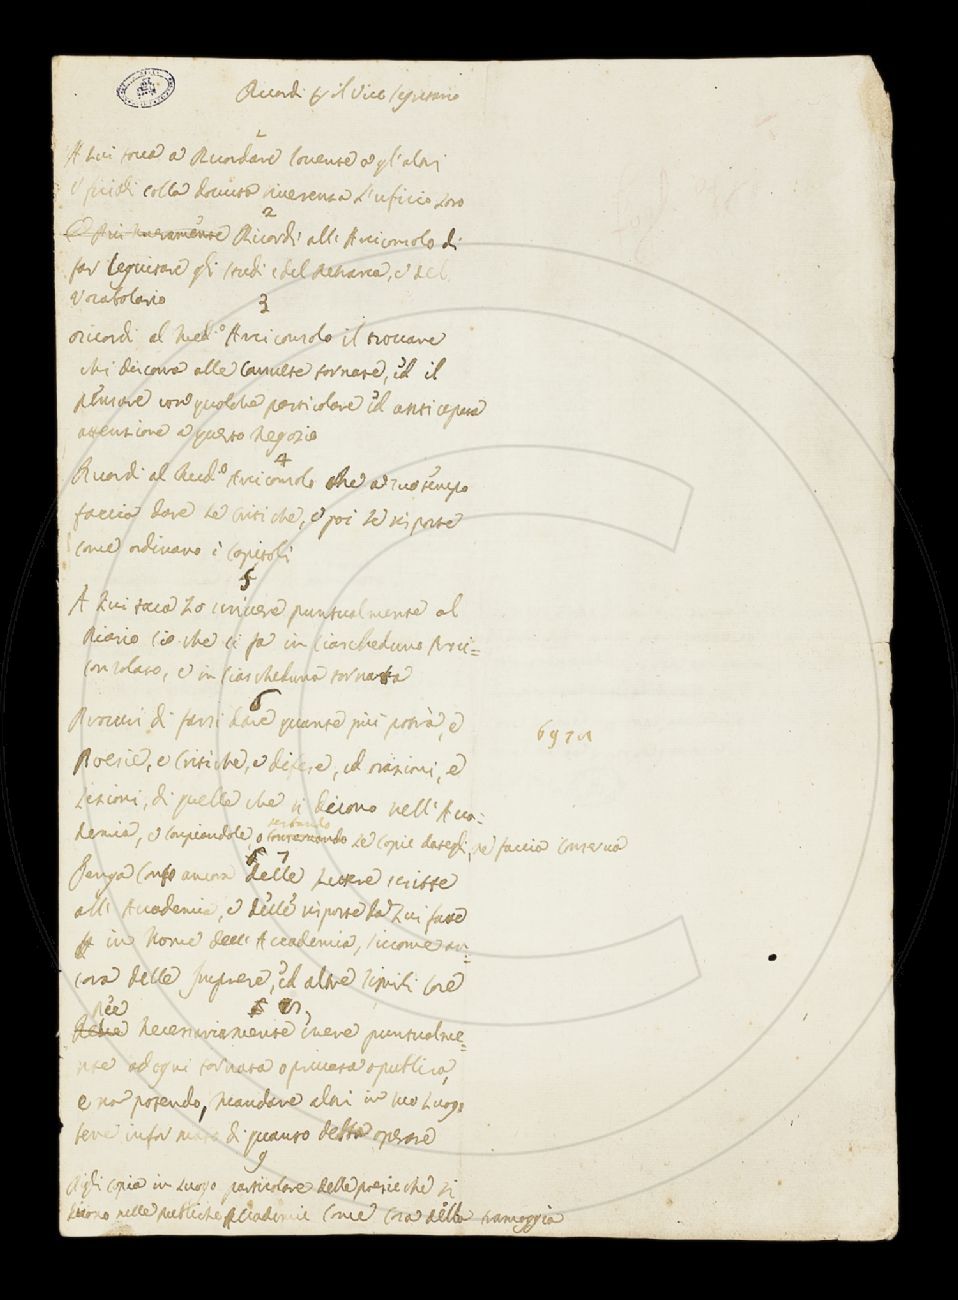 Ricordi p il Vice Segretario
1
A Lui tocca a Ricordare sovente a gl'altri
Ufiziali colla dovuta riverenza l'uficio loro
2
Ricordi all' Arciconsolo di
far seguitare gli studi e del Petrarca, e del
Vocabolario
3
Ricordi al Med.o Arciconsolo il trovare
chi discorra alle consuete tornate, ed il
pensare con qualche particolare ed anticipata
attenzione a questo negozio
4
Ricordi al Med.o Arciconsolo che a suo tempo
faccia dare le critiche, e poi le risposte
come ordinano i Capitoli
5
A Lui tocca lo scrivere puntualmente al
Diario ciò che si fa in ciascheduno Arci=
consolato, e in ciascheduna tornata
6
Procuri di farsi dare quante più potrà, e
Poesie, e Critiche, e difese, ed orazioni, e
Lezioni, di quelle che si dicono nell' Acca=
demia, e copiandole, o serbando le copie dategli, ne faccia conserva
7
Tenga conto ancora delle Lettere scritte
all' Accademia, e delle risposte da Lui fatte
in Nome dell' Accademia, siccome an=
cora delle Imprese, ed altre simili cose
8
Dee Necessariamente essere puntualme=
nte ad ogni tornata o privata o publica,
e non potendo, mandare altri in suo luogo
bene informato di quanto debba operare
9
Pigli copia in Luogo particolare delle poesie che si
dicono nelle publiche Accademie come cosa della tramoggia